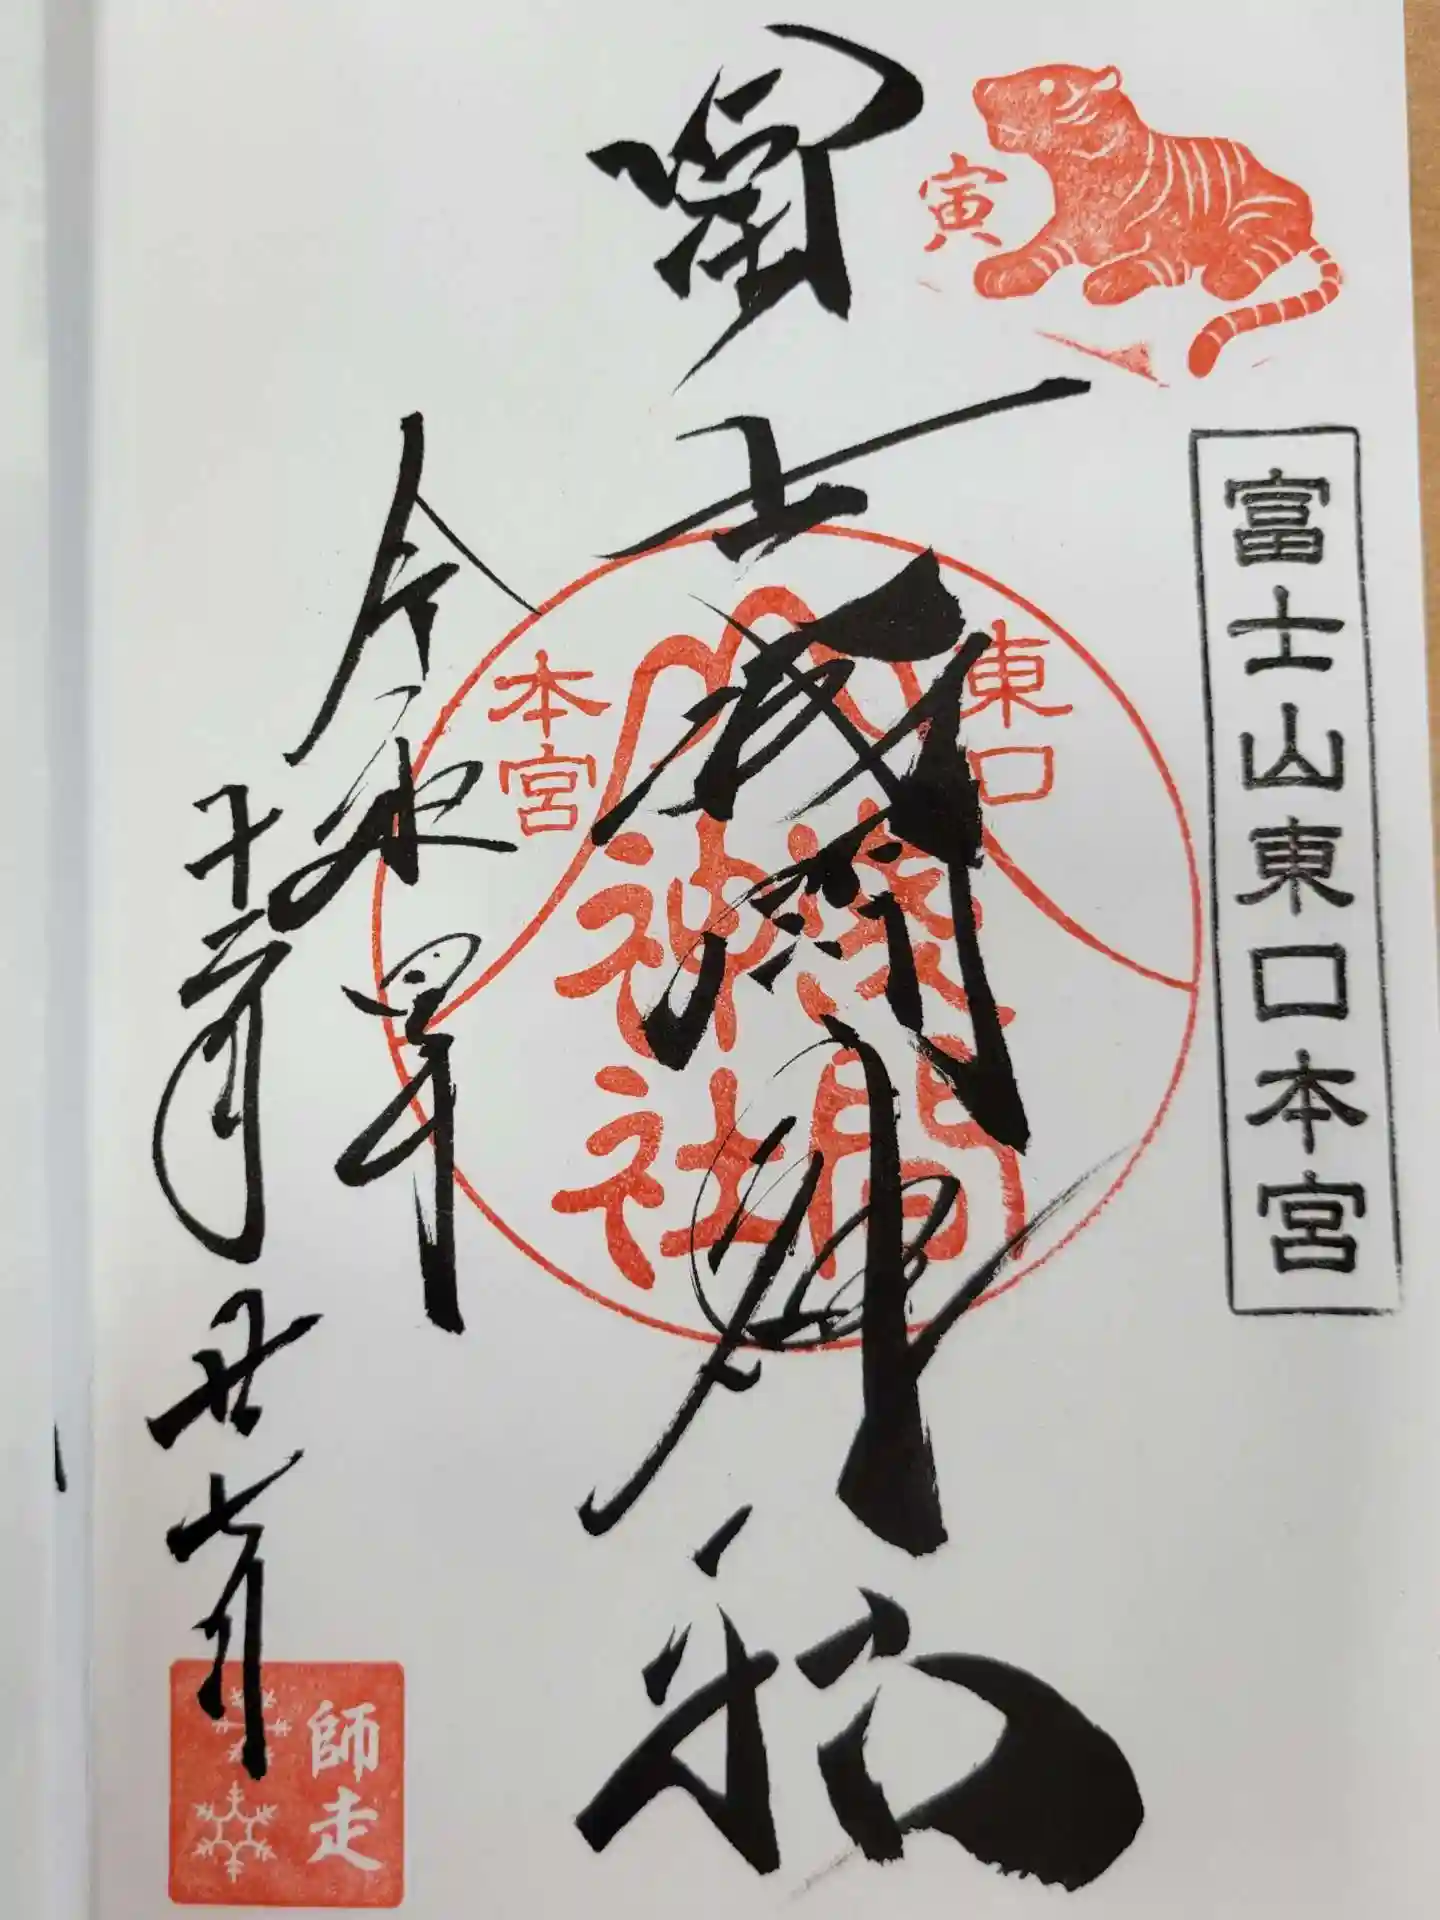 寅
富士山東口本宮
冨士浅間神社
東口
本宮
淺間
神社
令和四年
十二月廿七日
師走